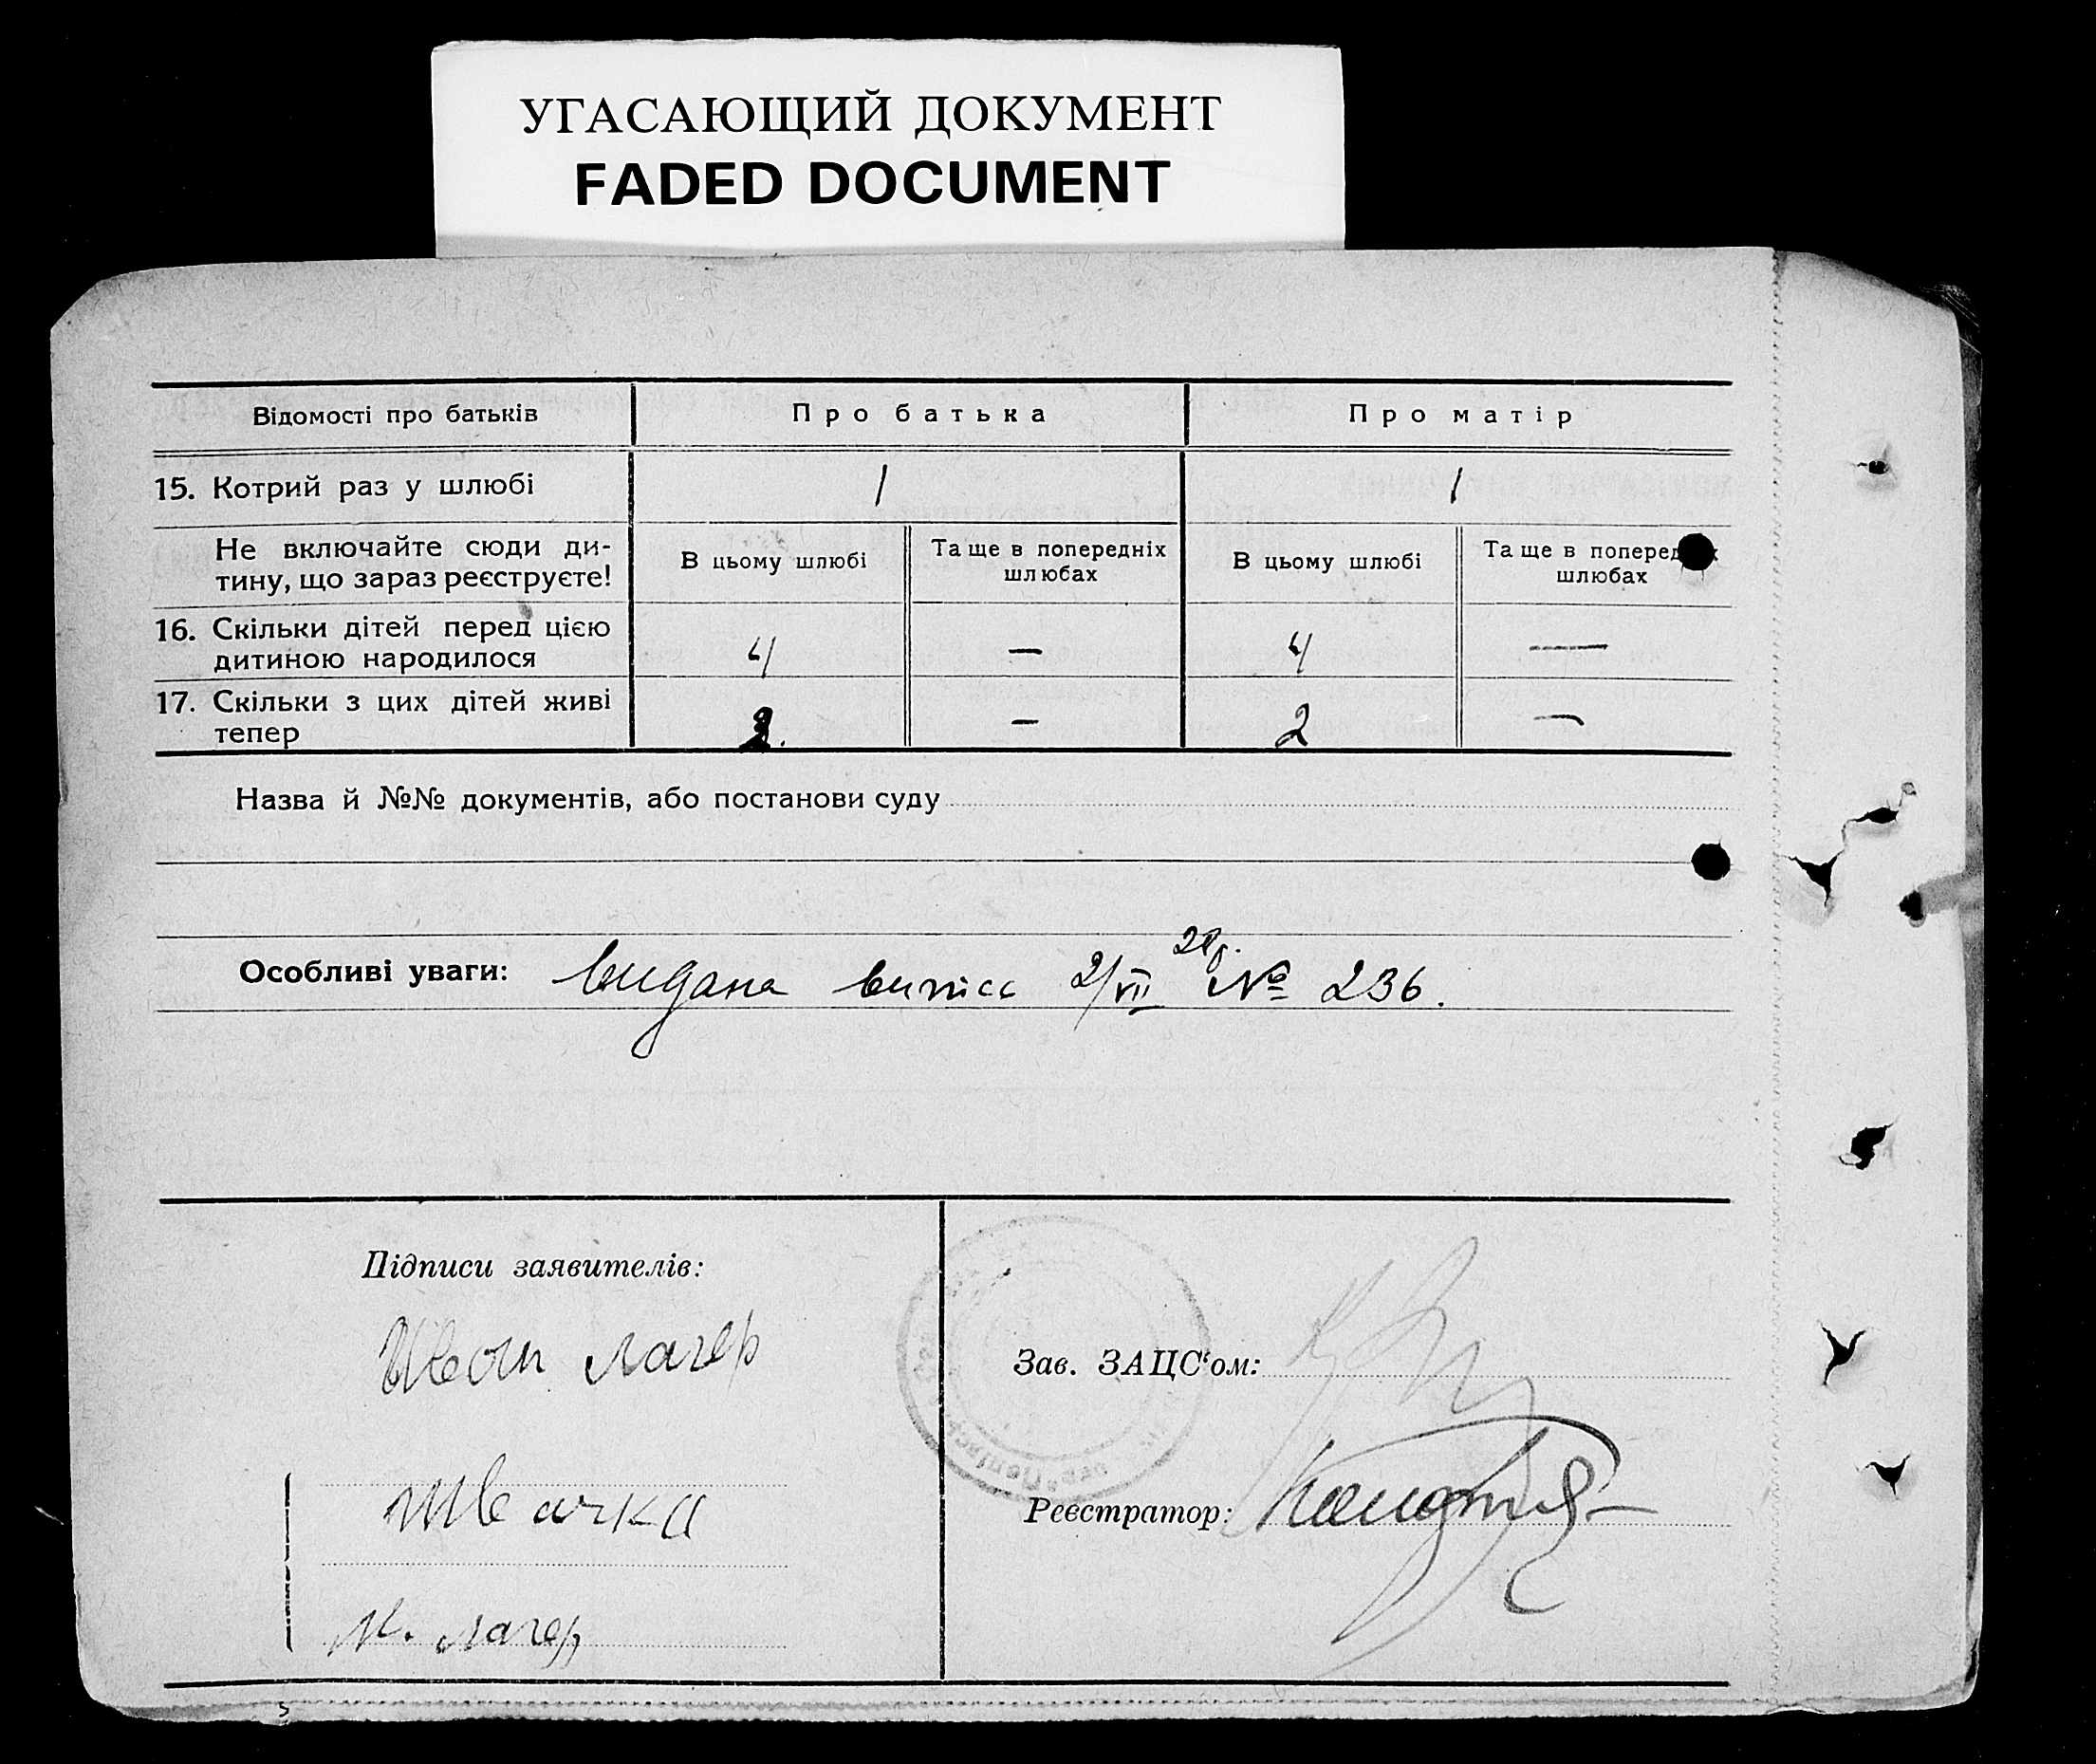 УГАСАЮЩИЙ ДОКУМЕНТ
FADED DOCUMENT
Відомості про батьків Про батька Про матір
15. Котрий раз у шлюбі 1 1
Не включайте сюди ди-
тину, що зараз реєструєте!
В цьому шлюбі
Та ще в попередніх
шлюбах
В цьому шлюбі
Та ще в поперед
шлюбах
16. Скільки дітей перед цією
дитиною народилося 4 — 4 —
17. Скільки з цих дітей живі
тепер 2. — 2 —
Назва й №№ документів, або постанови суду
Особливі уваги: видана випис 2/VII № 236.
Підписи заявителів:
лагер
Швачка
М. лагер
Зав. ЗАЦС‘ом:
Реєстратор: